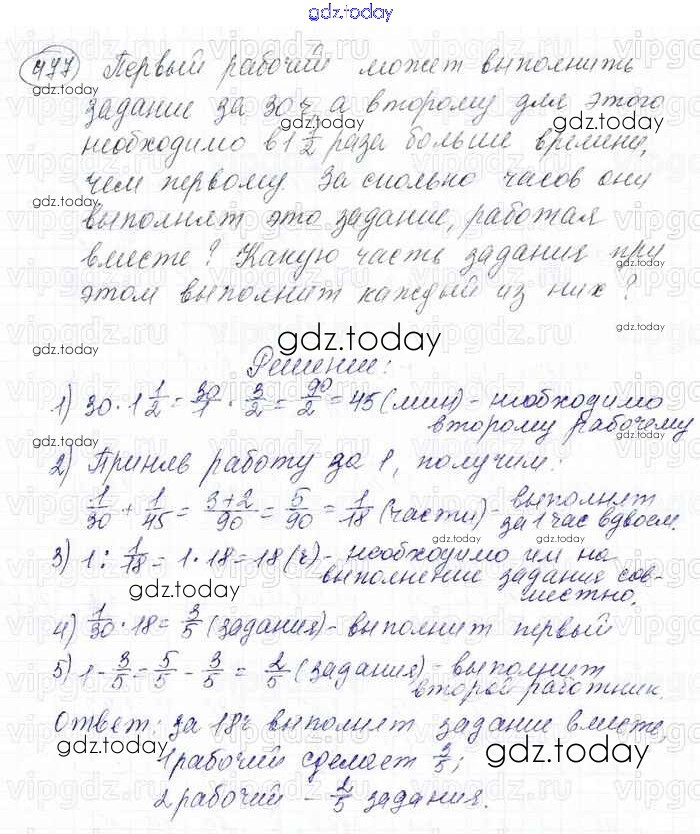 gdz.today
477 Первый рабочий может выполнить
задание за 30 ч, а второму для этого
необходимо в 1 1/2 раза больше времени,
чем первому. За сколько часов они
выполнят это задание, работая
вместе? Какую часть задания при
этом выполнит каждый из них?
gdz.today
Решение:
1) 30 · 1 1/2 = 30/1 · 3/2 = 90/2 = 45 (мин) - необходимо
второму рабочему
2) Приняв работу за 1, получим:
1/30 + 1/45 = 3+2/90 = 5/90 = 1/18 (части) - выполнят
за 1 час вдвоем.
3) 1 : 1/18 = 1 · 18 = 18 (ч) - необходимо им на
выполнение задания сов-
местно.
4) 1/30 · 18 = 3/5 (задания) - выполнит первый
5) 1 - 3/5 = 5/5 - 3/5 = 2/5 (задания) - выполнит
второй работник.
Ответ: за 18 ч выполнят задание вместе,
1 рабочий сделает 3/5;
gdz.today
2 рабочий - 2/5 задания.